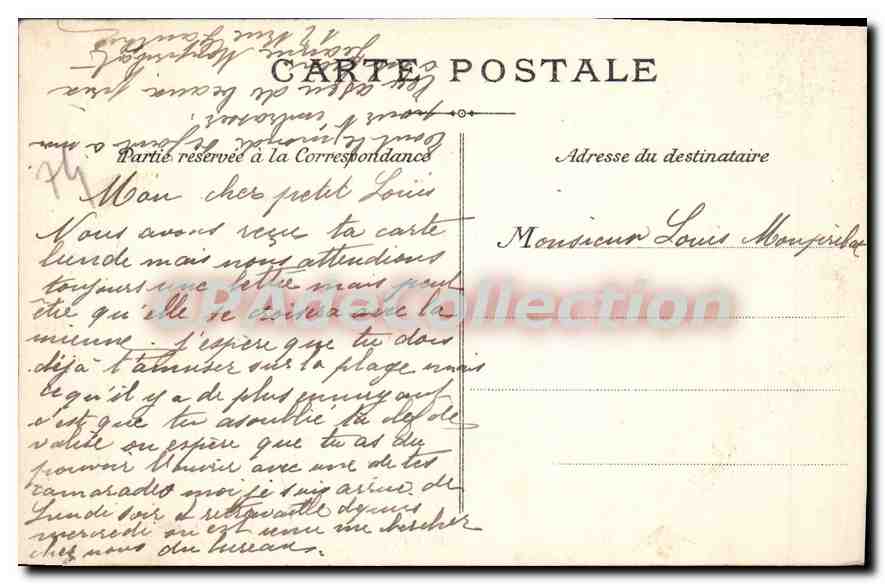 CARTE POSTALE
Partie réservée à la Correspondance
Adresse du destinataire
74
Mon cher petit Louis
Nous avons reçu ta carte
lunde mais nous attendions
toujours une lettre mais peut
être qu'elle se croisera avec la
mienne. j'espère que tu dois
déjà t'amuser sur la plage mais
ce qu'il y a de plus ennuyant
c'est que tu as oublié ta clef de
valise on espère que tu as du
pouvoir l'ouvrir avec une de tes
camarades moi je suis arrivé de
Lundi soir et retravaille depuis
mercredi on est venu me chercher
chez nous du bureau.
tout le monde se joint à
pour t'embrasser.
Monsieur Louis
CPADeCollection